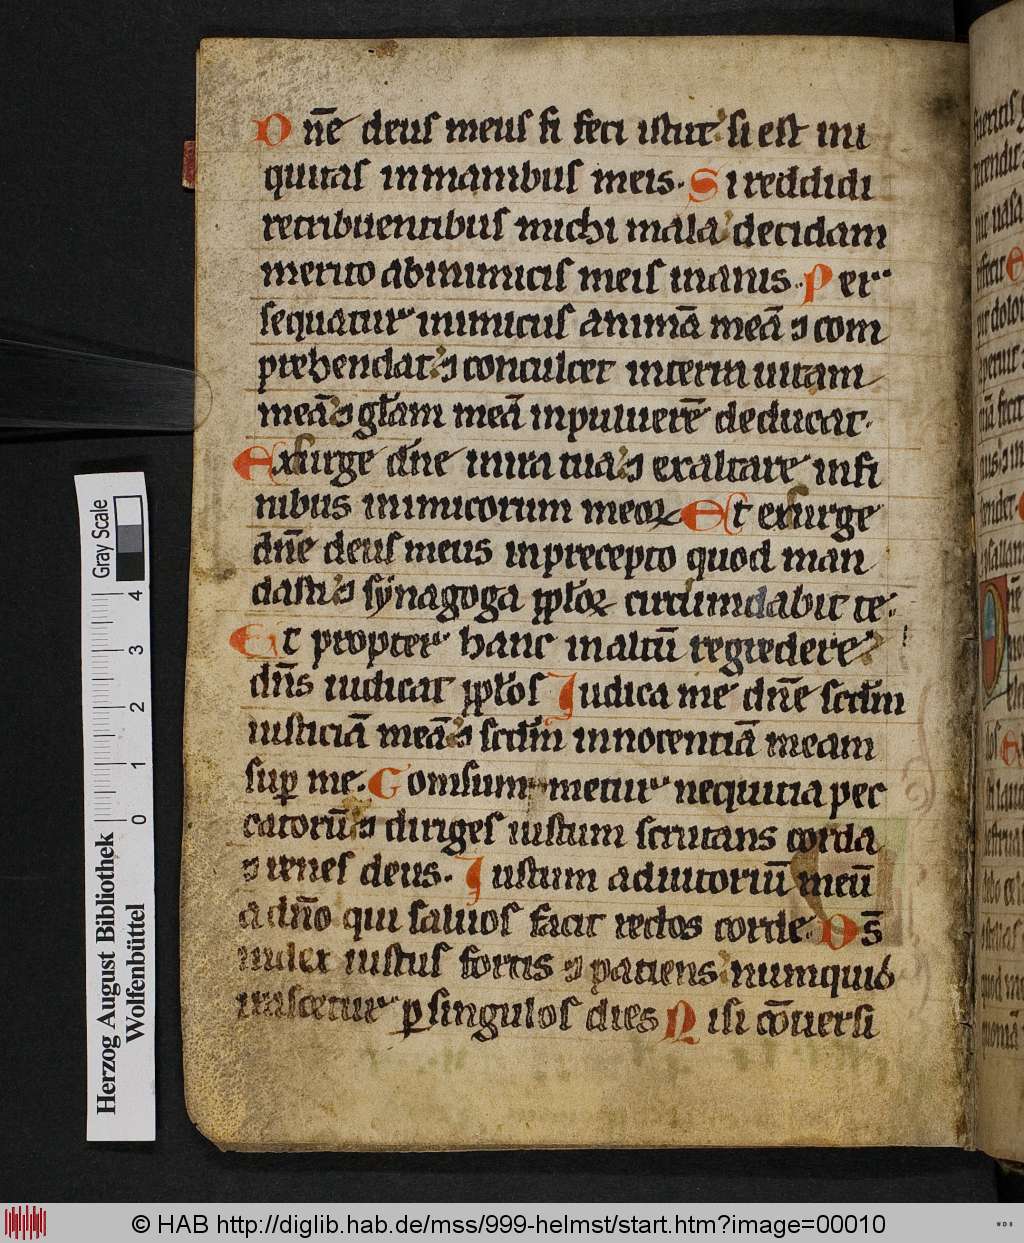 D nē deus meus si feci istut si est ini
quitas in manibus meis. Si reddidi
retribuentibus michi mala decidam
merito ab inimicis meis inanis. Per
sequatur inimicus animā meā ⁊ com
prehendat ⁊ conculcet in terra uitam
meā ⁊ głam meā in puluerē deducat.
Exsurge dn̄e in ira tua ⁊ exaltare in fi
nibus inimicorum meoꝝ Et exsurge
dn̄e deus meus in precepto quod man
dasti ⁊ synagoga ppłoꝝ circumdabit te.
Et propter hanc in altū regredere
dn̄s iudicat ppłos Iudica me dn̄e scdm̄
iusticiā meā ⁊ scdm̄ innocentiā meam
suꝑ me. Comsummetur nequitia pec
catorū ⁊ diriges iustum scrutans corda
⁊ renes deus. Iustum adiutoriū meū
a dn̄o qui saluos facit rectos corde. Ds̄
iudex iustus fortis ⁊ patiens numquid
irascetur ꝑ singulos dies Nisi cōuersi
Gray Scale
4
3
2
1
0
Herzog August Bibliothek
Wolfenbüttel
© HAB http://diglib.hab.de/mss/999-helmst/start.htm?image=00010